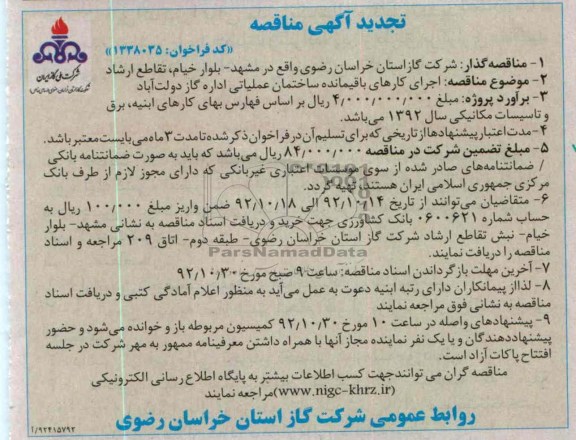 تجدید آگهی مناقصه
«کد فراخوان: ۱۳۳۸۰۳۵»
شرکت ملی گاز ایران
۱- مناقصه‌گذار: شرکت گاز استان خراسان رضوی واقع در مشهد- بلوار خیام، تقاطع ارشاد
۲- موضوع مناقصه: اجرای کارهای باقیمانده ساختمان عملیاتی اداره گاز دولت‌آباد
۳- برآورد پروژه: مبلغ ۴/۰۰۰/۰۰۰/۰۰۰ ریال بر اساس فهارس بهای کارهای ابنیه، برق
و تاسیسات مکانیکی سال ۱۳۹۲ می‌باشد.
۴-مدت اعتبار پیشنهادها از تاریخی که برای تسلیم آن در فراخوان ذکر شده تا مدت ۳ ماه می‌بایست معتبر باشد.
۵- مبلغ تضمین شرکت در مناقصه ۸۴/۰۰۰/۰۰۰ ریال می‌باشد که باید به صورت ضمانتنامه بانکی
/ ضمانتنامه‌های صادر شده از سوی موسسات اعتباری غیربانکی که دارای مجوز لازم از طرف بانک
مرکزی جمهوری اسلامی ایران هستند، تهیه گردد.
۶- متقاضیان می‌توانند از تاریخ ۹۲/۱۰/۱۴ الی ۹۲/۱۰/۱۸ ضمن واریز مبلغ ۱۰۰/۰۰۰ ریال به
حساب شماره ۰۶۰۰۶۲۱ بانک کشاورزی جهت خرید و دریافت اسناد مناقصه به نشانی مشهد- بلوار
خیام- نبش تقاطع ارشاد شرکت گاز استان خراسان رضوی- طبقه دوم- اتاق ۲۰۹ مراجعه و اسناد
مناقصه را دریافت نمایند.
ParsNamadData
۷- آخرین مهلت بازگرداندن اسناد مناقصه: ساعت ۹ صبح مورخ ۹۲/۱۰/۳۰
۸- لذا از پیمانکاران دارای رتبه ابنیه دعوت به عمل می‌آید به منظور اعلام آمادگی کتبی و دریافت اسناد
مناقصه به نشانی فوق مراجعه نمایند
۹- پیشنهادهای واصله در ساعت ۱۰ مورخ ۹۲/۱۰/۳۰ کمیسیون مربوطه باز و خوانده می‌شود و حضور
پیشنهاددهندگان و یا یک نفر نماینده مجاز آنها با همراه داشتن معرفینامه ممهور به مهر شرکت در جلسه
افتتاح پاکات آزاد است.
مناقصه گران می توانند جهت کسب اطلاعات بیشتر به پایگاه اطلاع رسانی الکترونیکی
(www.nigc-khrz.ir) مراجعه نمایند
روابط عمومی شرکت گاز استان خراسان رضوی
۹۲۴۱۵۷۹۲/آ